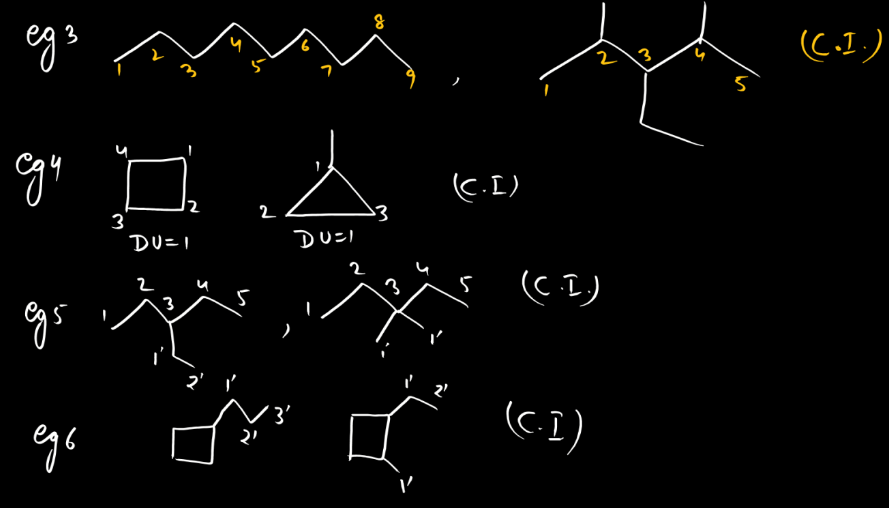 eg 3 1 2 3 4 5 6 7 8 9 , 1 2 3 4 5 (C.I.)
eg 4 4 1 3 2 1 2 3 (C.I)
DU=1 DU=1
eg 5 1 2 3 4 5 1' 2' , 1 2 3 4 5 1' 1' (C.I.)
eg 6 1' 2' 3' 1' 2' 1' (C.I)